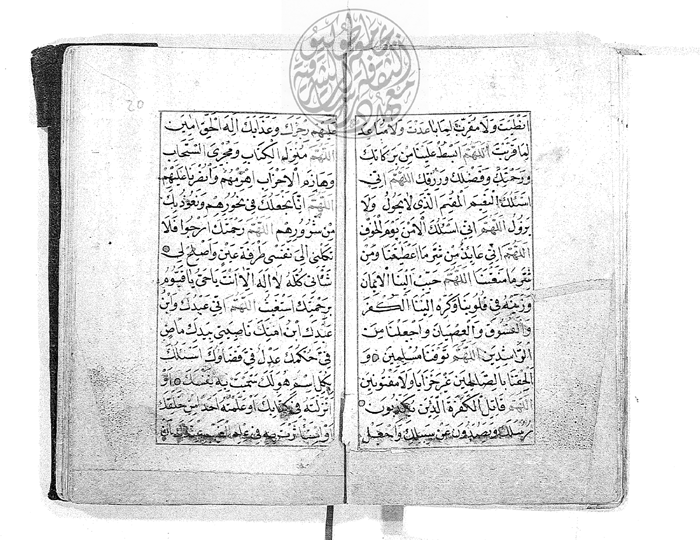 انطيت ولا مقرب لما باعدت ولا مباعد
لما قربت اللهم ابسط علينا من بركاتك
ورحمتك وفضلك ورزقك اللهم اني
اسئلك النعيم المقيم الذي لا يحول ولا
يزول اللهم اني اسئلك الامن يوم الخوف
اللهم اني عايذ من شر ما اعطيتنا ومن
شر ما منعتنا اللهم حبب الينا الايمان
وزينه في قلوبنا وكره الينا الكفر
والفسوق والعصيان واجعلنا من
الراشدين اللهم توفنا مسلمين و
الحقنا بالصالحين غير خزايا ولا مفتونين
اللهم قاتل الكفرة الذين يكذبون
رسلك ويصدون عن سبيلك واجعل
عليهم رجزك وعذابك اله الحق امين
اللهم منزل الكتاب ومجري السحاب
وهازم الاحزاب اهزمهم وانصرنا عليهم
اللهم انا نجعلك في نحورهم ونعوذ بك
من شرورهم اللهم رحمتك ارجوا فلا
تكلني الى نفسي طرفة عين واصلح لي
شأني كله لا اله الا انت يا حي يا قيوم
برحمتك استغيث اللهم اني عبدك وابن
عبدك ابن امتك ناصيتي بيدك ماض
في حكمك عدل في قضاؤك اسئلك
بكل اسم هو لك سميت به نفسك او
انزلته في كتابك او علمته احدا من خلقك
او استأثرت به في علم الغيب عندك ان
20